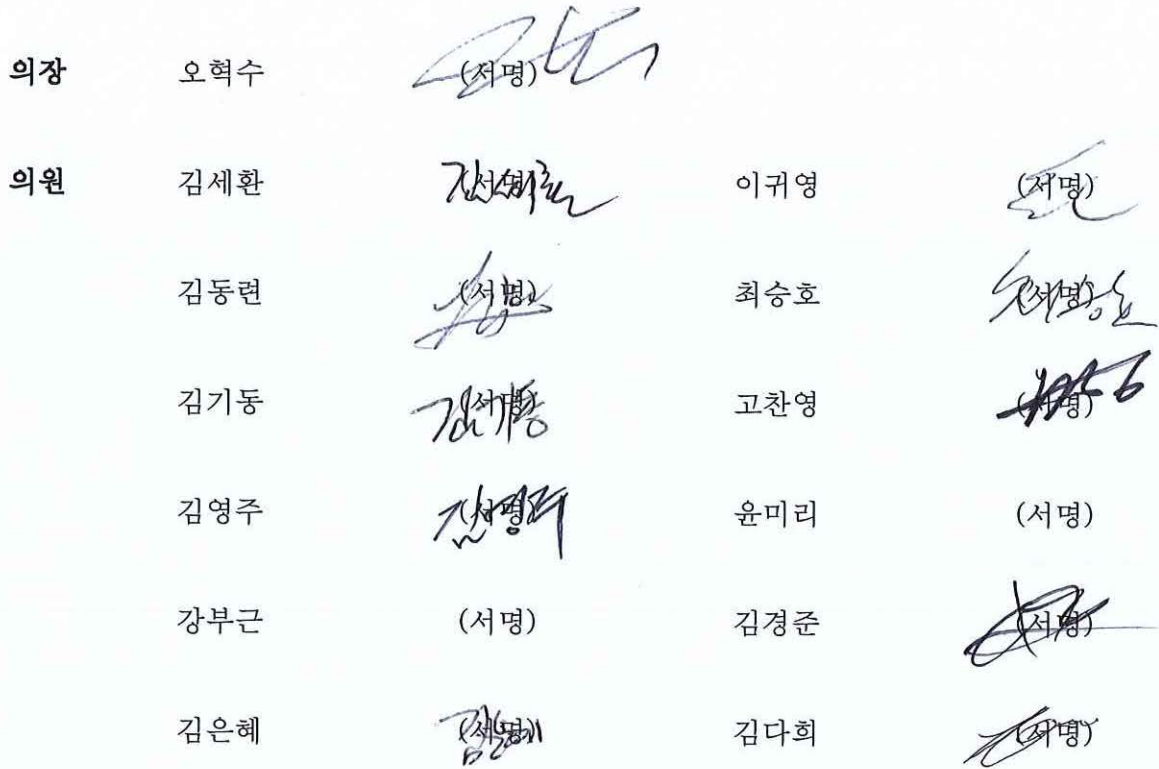 의장 오혁수 (서명)
의원 김세환 (서명) 이귀영 (서명)
김동련 (서명) 최승호 (서명)
김기동 (서명) 고찬영 (서명)
김영주 (서명) 윤미리 (서명)
강부근 (서명) 김경준 (서명)
김은혜 (서명) 김다희 (서명)